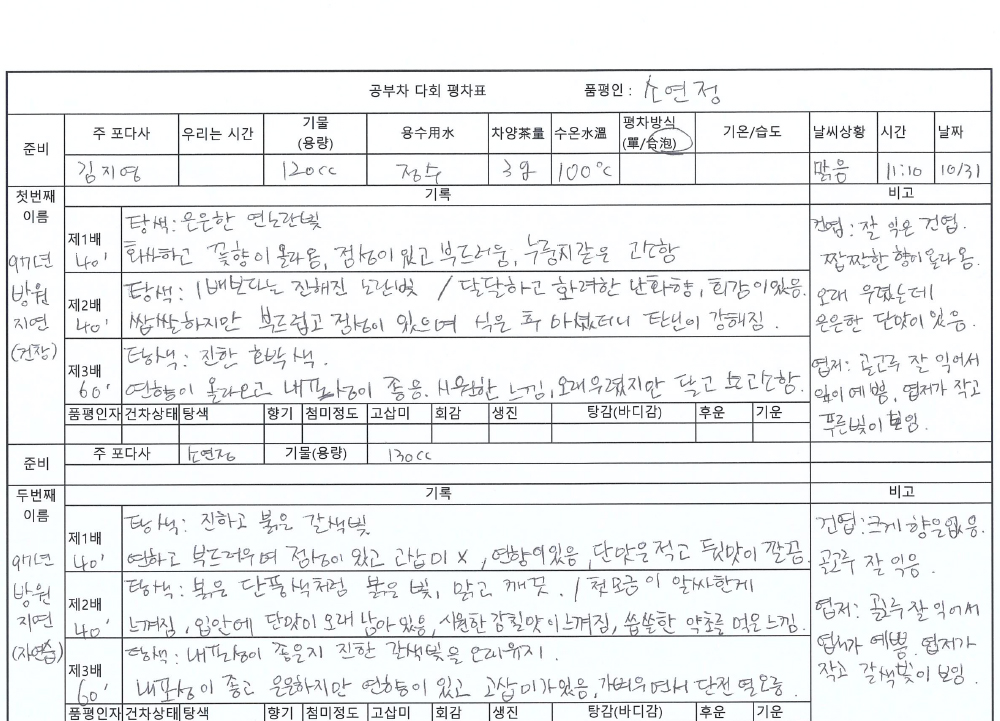 공부차 다회 평차표 품평인 : 소연정
준비 주 포다사 우리는 시간 기물(용량) 용수用水 차양茶量 수온水溫 평차방식(單/合泡) 기온/습도 날씨상황 시간 날짜
김지영 120cc 정수 3g 100℃ 맑음 11:10 10/31
첫번째 이름 기록 비고
97년 방원 지연 (건창)
제1배 40' 탕색: 은은한 연노란빛
화사하고 꽃향이 올라옴, 점성이 있고 부드러움, 누룽지같은 고소함
제2배 40' 탕색: 1배보다는 진해진 노란빛 / 달달하고 화려한 난화향, 회감이있음.
쌉쌀하지만 부드럽고 점성이 있으며 식은 후 마셨더니 탄닌이 강해짐.
제3배 60' 탕색: 진한 호박색.
연향이 올라오고 내포성이 좋음. 시원한 느낌, 오래우렸지만 달고 고소함.
건엽: 잘 익은 건엽.
짭짤한 향이 올라옴.
오래 우렸는데
은은한 단맛이 있음.
엽저: 골고루 잘 익어서
잎이 예쁨, 엽저가 작고
푸른빛이 보임.
품평인자 건차상태 탕색 향기 첨미정도 고삽미 회감 생진 탕감(바디감) 후운 기운
준비 주 포다사 소연정 기물(용량) 130cc
두번째 이름 기록 비고
97년 방원 지연 (자연습)
제1배 40' 탕색: 진하고 붉은 갈색빛
연하고 부드러우며 점성이 있고 고삽미 x, 연향이있음, 단맛은적고 뒷맛이 깔끔.
제2배 40' 탕색: 붉은 단풍색처럼 붉은 빛, 맑고 깨끗. / 첫모금이 알싸한게
느껴짐, 입안에 단맛이 오래 남아있음, 시원한 감칠맛이느껴짐, 씁쓸한 약초를 먹은 느낌.
제3배 60' 탕색: 내포성이 좋은지 진한 갈색빛을 오래유지.
내포성이 좋고 은은하지만 연향이 있고 고삽미가있음, 가벼우면서 단전 열오름.
건엽: 크게 향은없음.
골고루 잘 익음.
엽저: 골고루 잘 익어서
엽저가 예쁨. 엽저가
작고 갈색빛이 보임.
품평인자 건차상태 탕색 향기 첨미정도 고삽미 회감 생진 탕감(바디감) 후운 기운